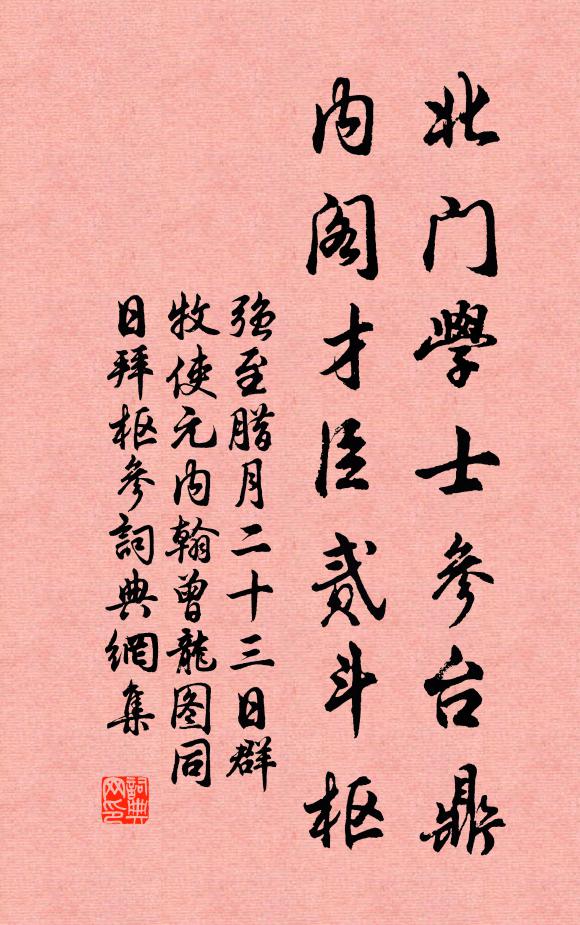 北门學士參台鼎
内阁才臣貳斗枢
強至臘月二十三日群
牧使元内翰曾龍图同
日拜枢参詞典網集
詞典
网印